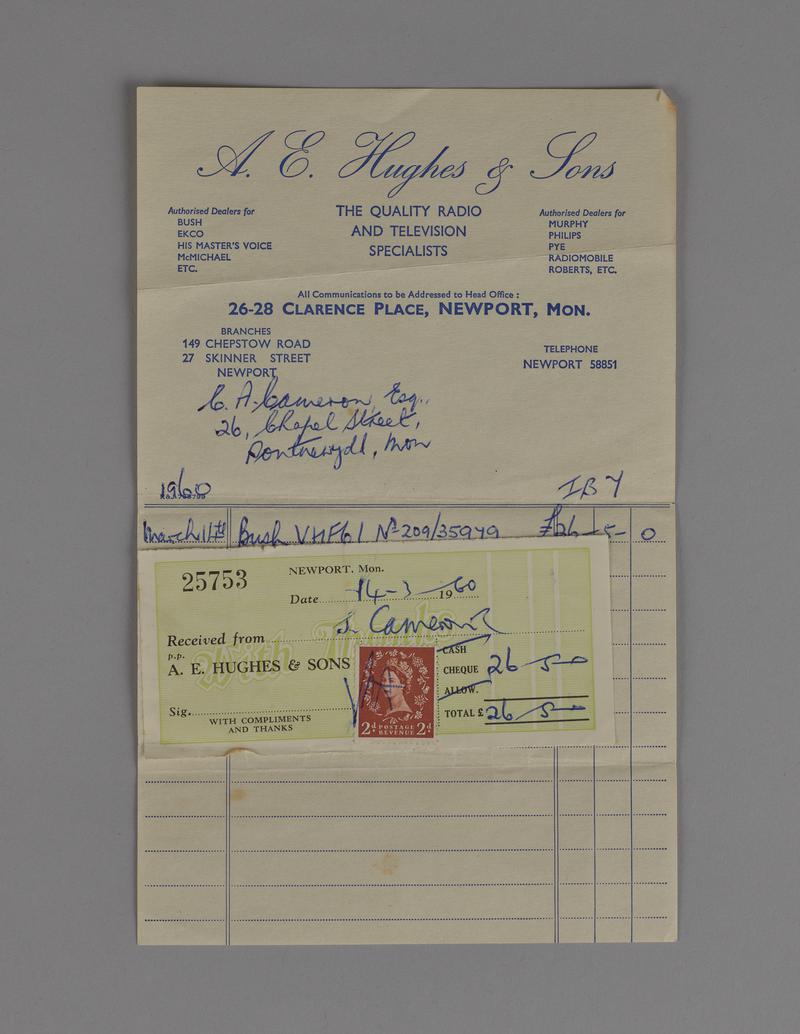 A. E. Hughes & Sons
Authorised Dealers for
BUSH
EKCO
HIS MASTER'S VOICE
McMICHAEL
ETC.
THE QUALITY RADIO
AND TELEVISION
SPECIALISTS
Authorised Dealers for
MURPHY
PHILIPS
PYE
RADIOMOBILE
ROBERTS, ETC.
All Communications to be Addressed to Head Office :
26-28 CLARENCE PLACE, NEWPORT, MON.
BRANCHES
149 CHEPSTOW ROAD
27 SKINNER STREET
NEWPORT
TELEPHONE
NEWPORT 58851
C. A. Cameron, Esq.,
26, Chapel Street,
Pontnewydd, Mon
1960
March 11th Bush VHF61 No 209/35979 £26-5-0
25753
NEWPORT. Mon.
Date 14-3-1960
With Thanks
Received from Cameron
p.p.
A. E. HUGHES & SONS
Sig.
WITH COMPLIMENTS
AND THANKS
CASH
CHEQUE 26-5-0
ALLOW.
TOTAL £ 26-5-0
2d POSTAGE REVENUE 2d